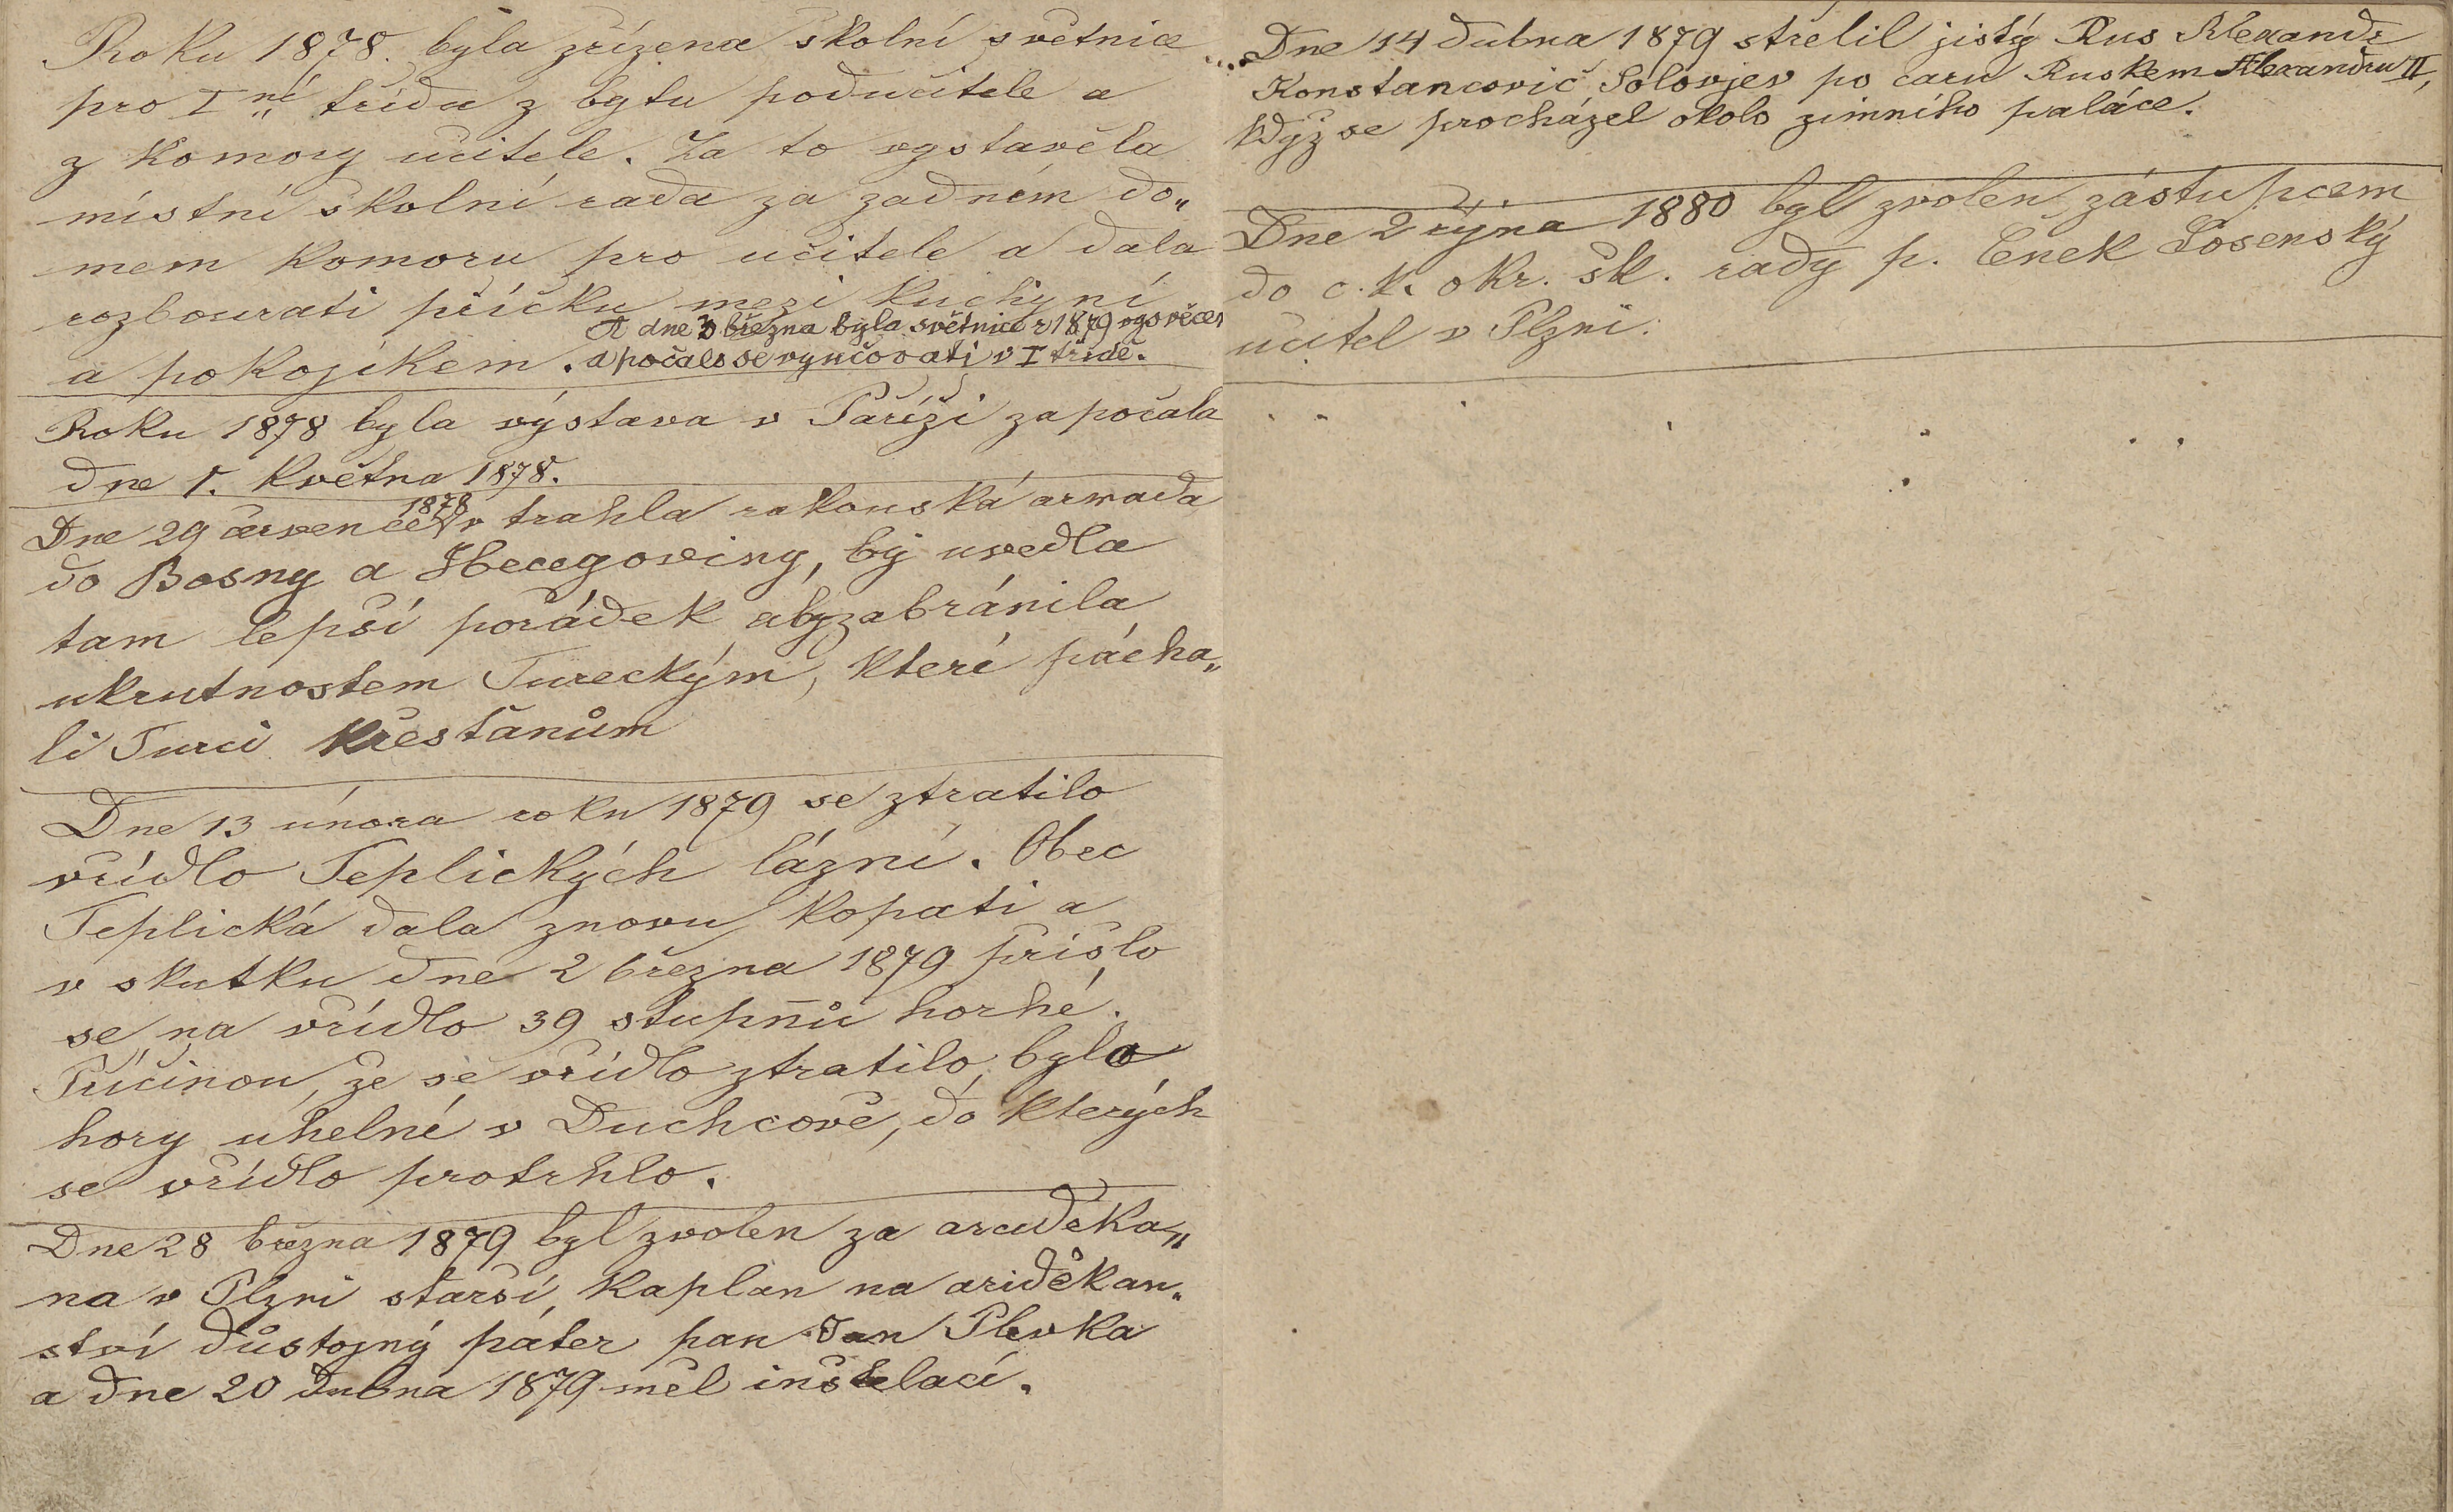 Roku 1878. byla zřízena školní světnice
pro I.ní třídu z bytu podučitele a
z komory učitele. Za to vystavěla
místní školní rada za zadním do„
mem komoru pro učitele a dala
rozbourati příčku mezi kuchyní
A dne 3 března byla světnice r 1879 vysvěcen
a pokojíkem. a počalo se vyučovati v I třídě.
Roku 1878 byla výstava v Paříži započala
dne 1. května 1878.
Dne 29 července 1878 v trahla rakouská armada
do Bosny a Hercegoviny, by uvedla
tam lepší pořádek aby zabránila
ukrutnostem Tureckým, které pácha„
li Turci křesťanům
Dne 13 února roku 1879 se ztratilo
vřídlo Teplických lázní. Obec
Teplická dala znovu kopati a
v skutku dne 2 března 1879 přišlo
se na vřídlo 39 stupňů horké.
Příčinou, že se vřídlo ztratilo, byla
hory uhelné v Duchcově, do kterých
se vřídlo protrhlo.
Dne 28 března 1879 byl zvolen za arciděka„
na v Plzni starší kaplan na arciděkan„
ství důstojný páter pan Jan Plevka
a dne 20 dubna 1879 měl inštelací.
Dne 14 dubna 1879 střelil jistý Rus Alexandr
Konstancovič Solovjev po caru Ruskem Alexandru II,
když se procházel okolo zimního paláce.
Dne 2 října 1880 byl zvolen zástupcem
do c. k. okr. šk. rady p. Čeněk Sosenský
učitel v Plzni.